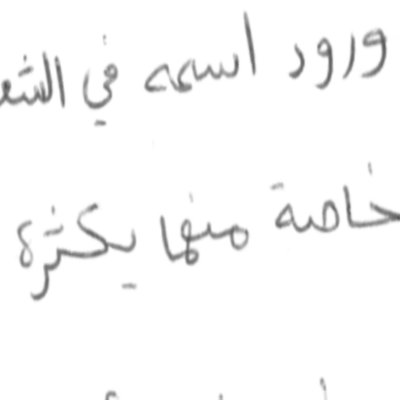 ورود اسمه في الشعر
خاصة منها بكثرة